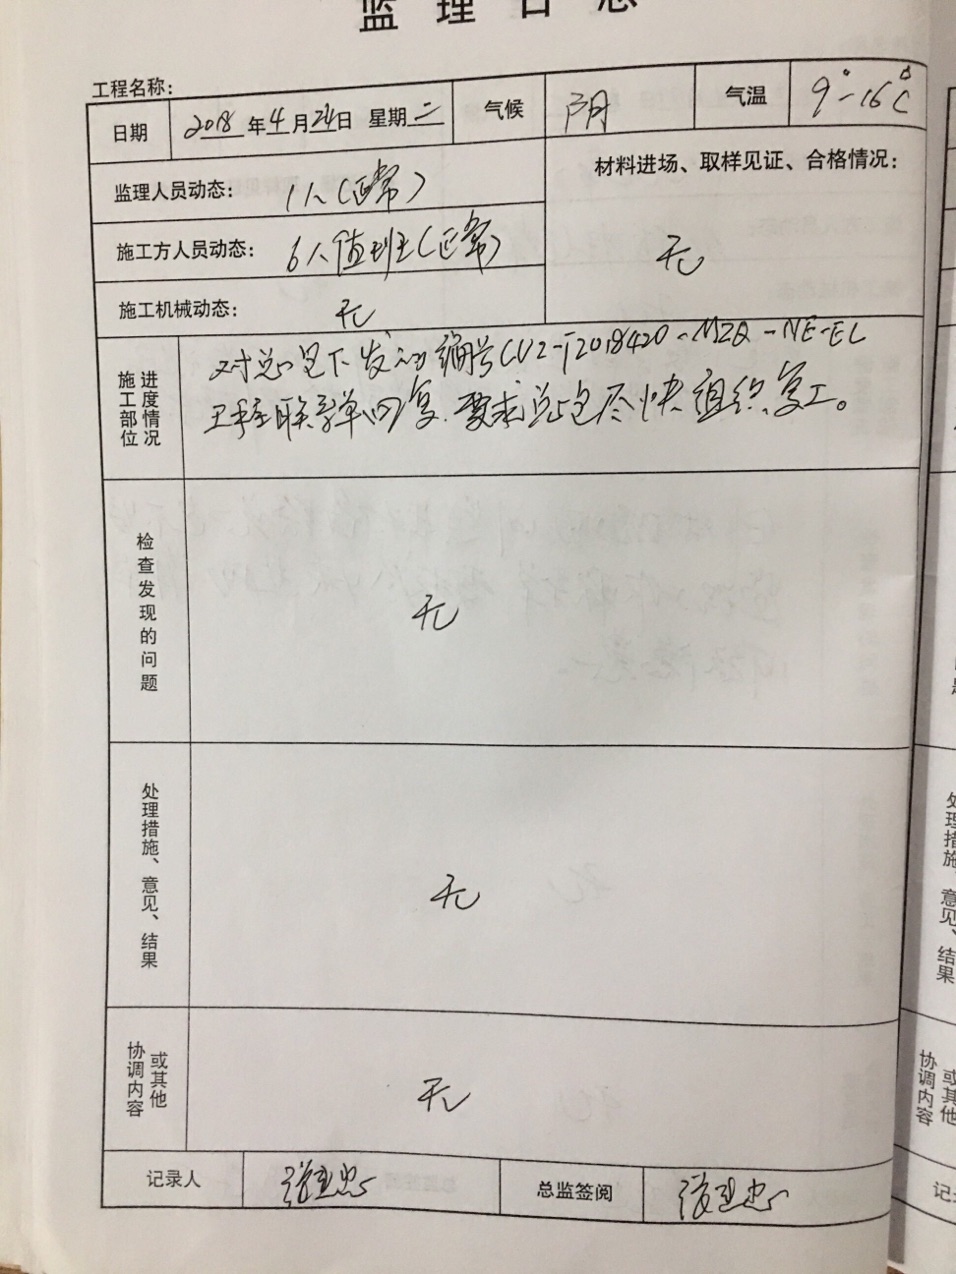 监理日志
工程名称：
日期 2018年4月24日 星期二 气候 阴 气温 9°-16℃
监理人员动态： 1人（正常）
材料进场、取样见证、合格情况：
无
施工方人员动态： 6人值班（正常）
施工机械动态： 无
施工部位
进度情况
对总包下发的编号CU2-T2018420-MZQ-NE-EL
工程联系单回复，要求总包尽快组织复工。
检查发现的问题
无
处理措施、意见、结果
无
协调内容
或其他
无
记录人
总监签阅